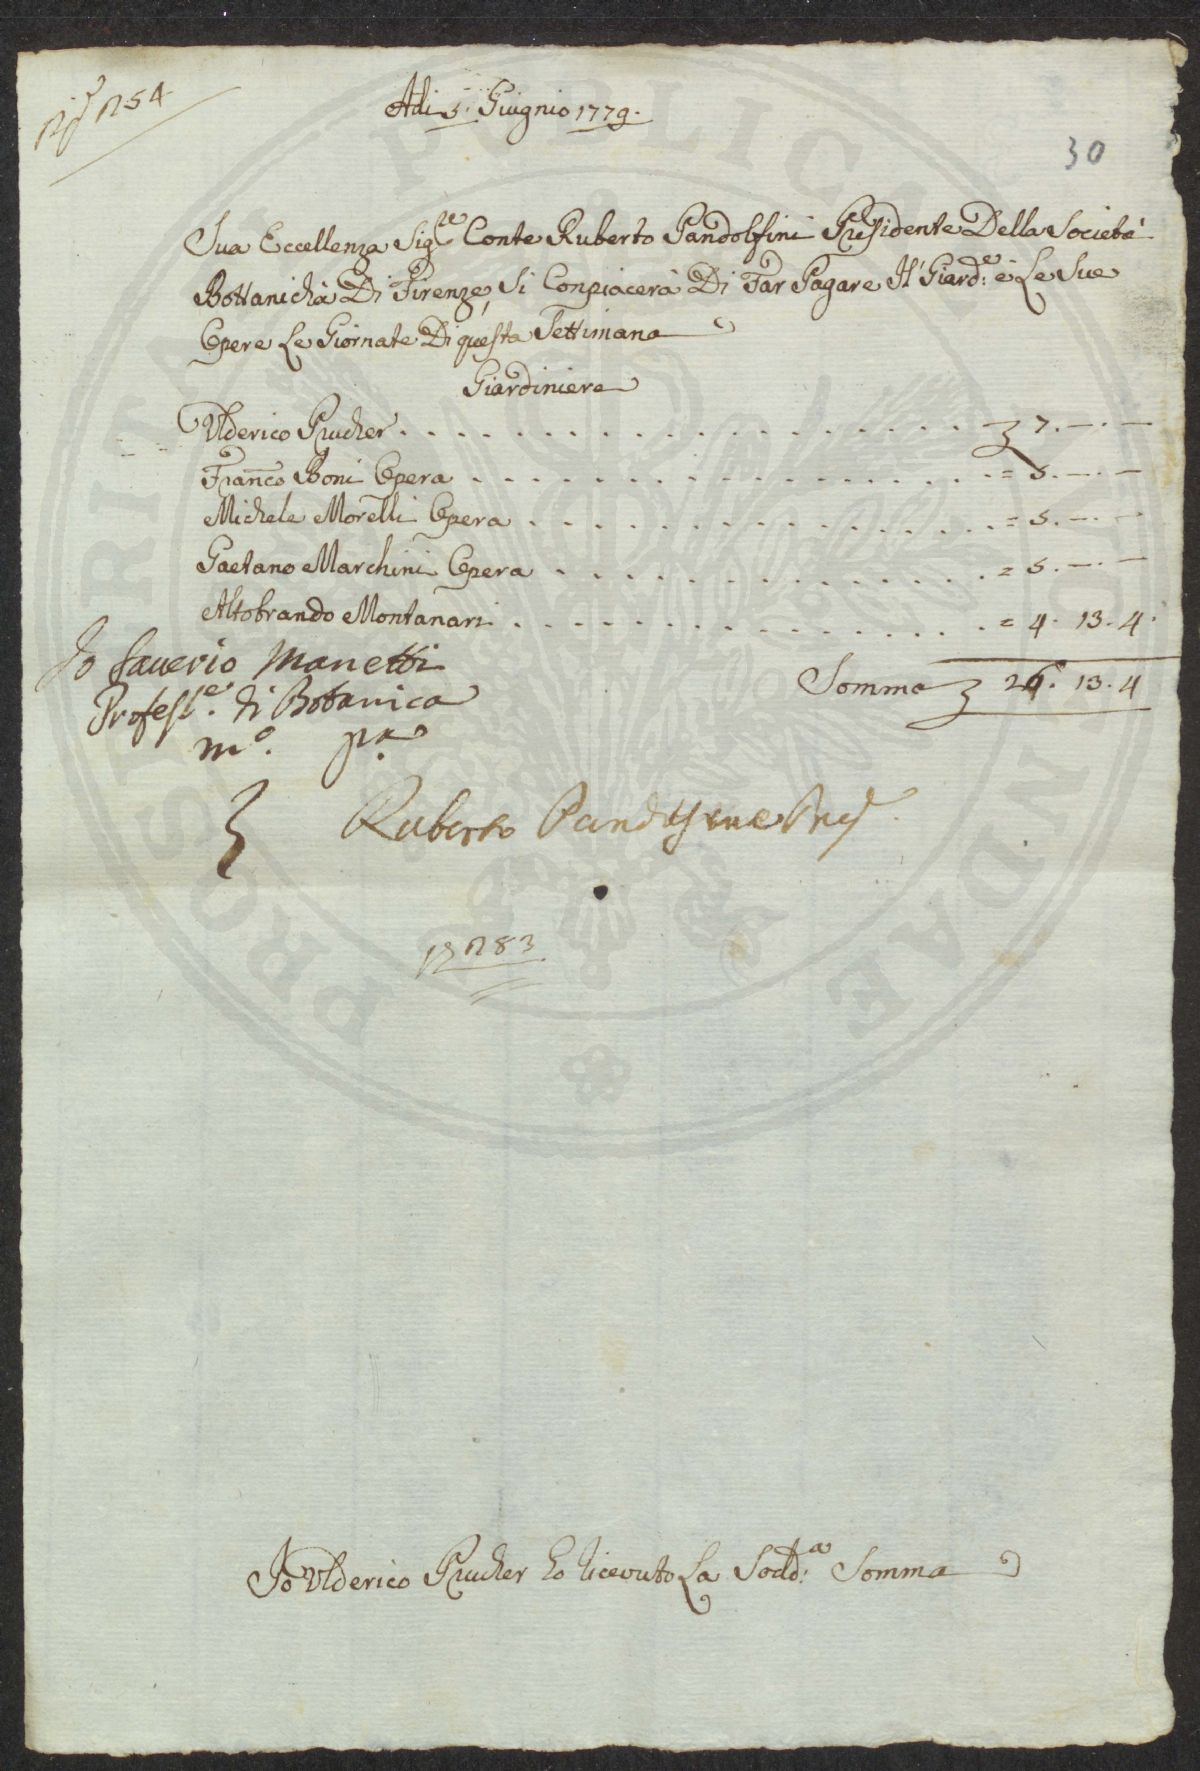 254
Adi 5. Giugnio 1779.
30
Sua Eccellenza Sig.re Conte Ruberto Pandolfini Presidente Della Società
Bottanicha Di Firenze, Si Conpiacerà Di Far Pagare Il Giard.e e Le Sue
Opere Le Giornate Di questa Settimana
Giardiniere
Ulderico Prucher . . . . . . . . . . . . . . . . . . . . 7. —. —
Fran.co Boni Opera . . . . . . . . . . . . . . . . . . = 5. —. —
Michele Morelli Opera . . . . . . . . . . . . . . . . = 5. —. —
Gaetano Marchini Opera . . . . . . . . . . . . . . . = 5. —. —
Altobrando Montanari . . . . . . . . . . . . . . . . = 4. 13. 4.
Io Saverio Manetti
Profess.e di Botanica
m.o p.a
Somma 26. 13. 4
Ruberto Pandolfini Pres.
83
Io Ulderico Prucher ho ricevuto La Sodd.a Somma
PROSPERITATI PUBLICAE AUGENDAE